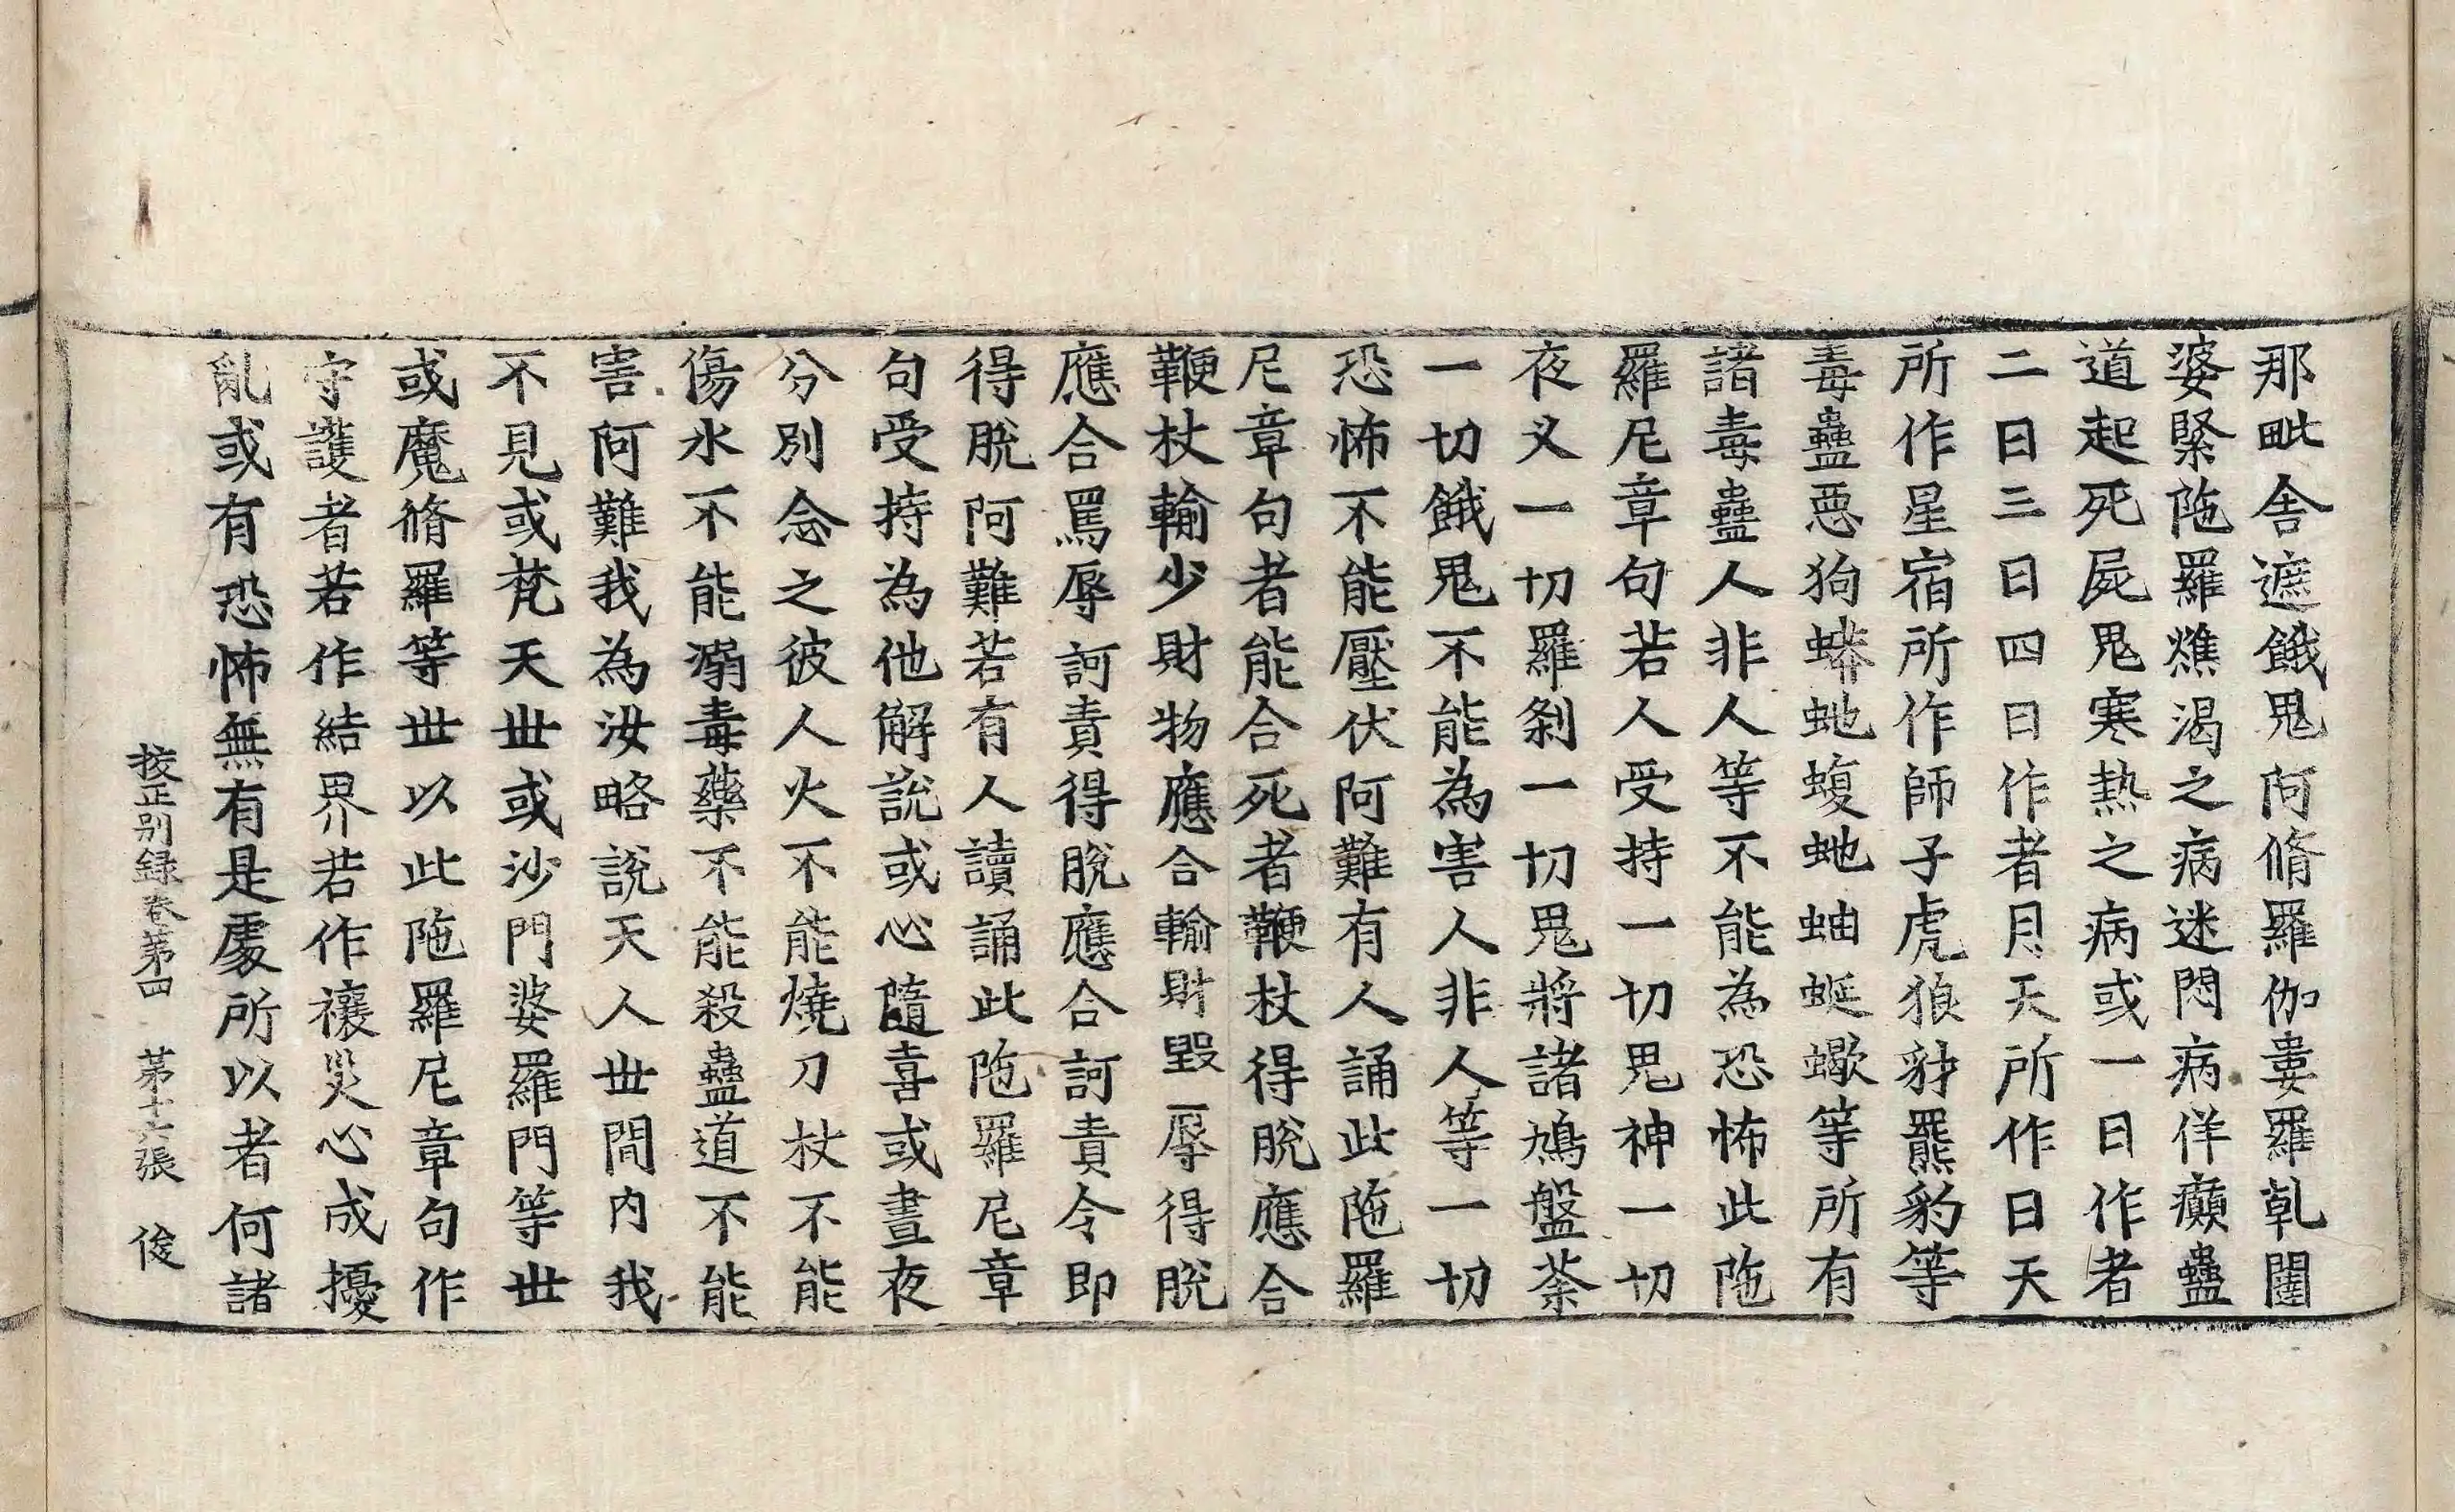 那毗舍遮餓鬼阿脩羅伽婁羅乹闥
婆緊陁羅燋渴之病迷悶病佯癲蠱
道起死屍鬼寒熱之病或一日作者
二日三日四日作者月天所作日天
所作星宿所作師子虎狼豺羆豹等
毒蠱惡狗蟒虵蝮虵蚰蜒蠍等所有
諸毒蠱人非人等不能為恐怖此陁
羅尼章句若人受持一切鬼神一切
夜叉一切羅剎一切鬼將諸鳩盤荼
一切餓鬼不能為害人非人等一切
恐怖不能壓伏阿難有人誦此陁羅
尼章句者能合死者鞭杖得脫應合
鞭杖輸少財物應合輸財毀辱得脫
應合罵辱訶責得脫應合訶責令即
得脫阿難若有人讀誦此陁羅尼章
句受持為他解說或心隨喜或晝夜
分別念之彼人火不能燒刀杖不能
傷水不能溺毒藥不能殺蠱道不能
害阿難我為汝略說天人丗間內我
不見或梵天丗或沙門婆羅門等丗
或魔脩羅等丗以此陁羅尼章句作
守護者若作結界若作禳災心成擾
亂或有恐怖無有是處所以者何諸
挍正別錄卷第四　第十六張　俊